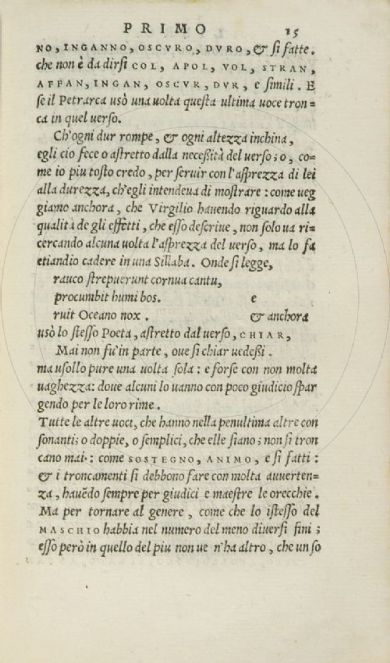 PRIMO 15
NO, INGANNO, OSCVRO, DVRO, & si fatte.
che non è da dirsi COL, APOL, VOL, STRAN,
AFFAN, INGAN, OSCVR, DVR, e simili. E
se il Petrarca usò una uolta questa ultima uoce tron=
ca in quel uerso.
Ch'ogni dur rompe, & ogni altezza inchina,
egli cio fece o astretto dalla necessità del uerso; o, co=
me io piu tosto credo, per seruir con l'asprezza di lei
alla durezza, ch'egli intendeua di mostrare: come ueg
giamo anchora, che Virgilio hauendo riguardo alla
qualità de gli effetti, che esso descriue, non solo ua ri=
cercando alcuna uolta l'asprezza del uerso, ma lo fa
etiandio cadere in una Sillaba. Onde si legge,
rauco strepuerunt cornua cantu,
procumbit humi bos. e
ruit Oceano nox. & anchora
usò lo stesso Poeta, astretto dal uerso, CHIAR,
Mai non fu'in parte, oue si chiar uedeßi.
ma usollo pure una uolta sola: e forse con non molta
uaghezza: doue alcuni lo uanno con poco giudicio spar
gendo per le loro rime.
Tutte le altre uoci, che hanno nella penultima altre con
sonanti; o doppie, o semplici, che elle siano; non si tron
cano mai: come SOSTEGNO, ANIMO, e si fatti:
& i troncamenti si debbono fare con molta auuerten=
za, hauēdo sempre per giudici e maestre le orecchie.
Ma per tornare al genere, come che lo istesso del
MASCHIO habbia nel numero del meno diuersi fini;
esso però in quello del piu non ue n'ha altro, che un so